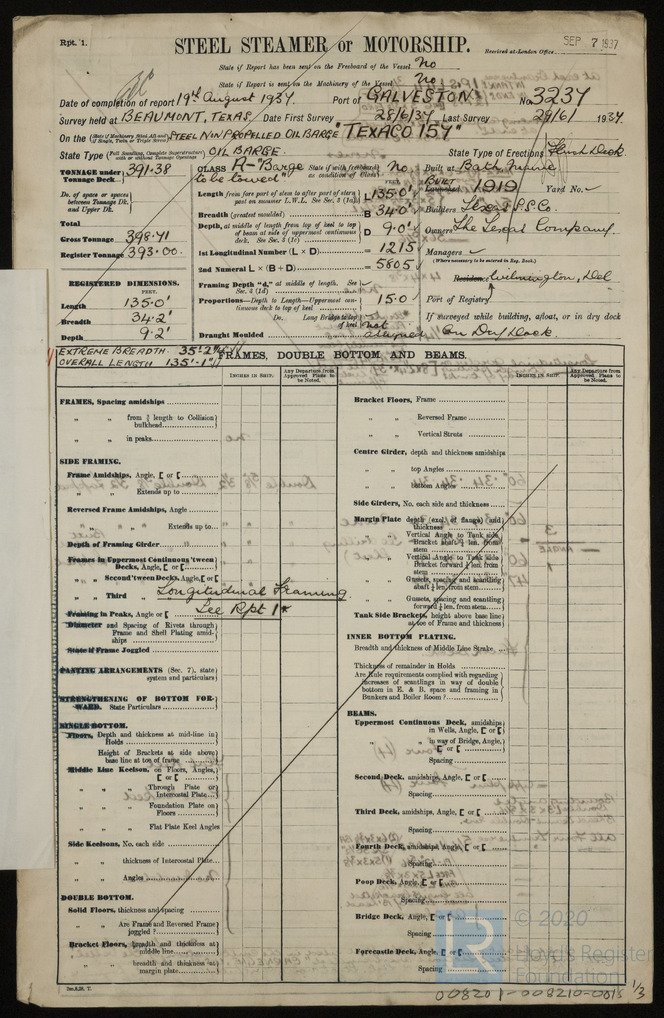 Rpt. 1.
STEEL STEAMER or MOTORSHIP.
Received at London Office
SEP 7 1937
State if Report has been sent on the Freeboard of the Vessel No
State if Report is sent on the Machinery of the Vessel No
Date of completion of report 19th August 1937. Port of GALVESTON No 3237
Survey held at BEAUMONT, TEXAS Date First Survey 28/6/37 Last Survey 29/6/ 1937
On the (State if Machinery fitted Aft and if Single, Twin or Triple Screw) STEEL NON PROPELLED OIL BARGE "TEXACO 157"
State Type (Full Scantling, Complete Superstructure with or without Tonnage Openings) OIL BARGE. State Type of Erections Flush Deck
TONNAGE under Tonnage Deck 391.38
Do. of space or spaces between Tonnage Dk. and Upper Dk.
Total
Gross Tonnage 398.71
Register Tonnage 393.00.
REGISTERED DIMENSIONS.
FEET.
Length 135.0'
Breadth 34.2'
Depth 9.2'
CLASS A-"Barge to be towed" State if with freeboard as condition of Class No
FEET.
Length from fore part of stem to after part of stern post on summer L.W.L. See Sec. 3 (1a) L 135.0'
Breadth (greatest moulded) B 34.0'
Depth, at middle of length from top of keel to top of beam at side of uppermost continuous deck. See Sec. 3 (1c) D 9.0'
1st Longitudinal Number (L × D) = 1215
2nd Numeral L × (B + D) = 5805
Framing Depth "d," at middle of length. See Sec. 3 (1d)
Proportions—Depth to Length—Uppermost continuous deck to top of keel 15.0
Do. Long Bridge to top of keel
Draught Moulded not assigned
Built at Bath, Maine
BUILT Launched 1919 Yard No.
Builders Texas S.S. Co.
Owners The Texas Company
Managers
(Where necessary to be entered in Reg. Book.)
Residence Wilmington, Del
Port of Registry
If surveyed while building, afloat, or in dry dock
On Dry Dock.
EXTREME BREADTH 35'-2"
OVERALL LENGTH 135'-1"
FRAMES, DOUBLE BOTTOM AND BEAMS.
INCHES IN SHIP.
Any Departure from Approved Plans to be Noted.
INCHES IN SHIP.
Any Departure from Approved Plans to be Noted.
FRAMES, Spacing amidships
" " from 3/5 length to Collision bulkhead
" " in peaks
SIDE FRAMING.
Frame Amidships, Angle, [ or [
" " Extends up to
Reversed Frame Amidships, Angle
" " " Extends up to
Depth of Framing Girder
Frames in Uppermost Continuous 'tween Decks, Angle, [ or [
" " Second 'tween Decks, Angle, [ or [
" " Third " " "
Longitudinal Framing
See Rpt 1*
Framing in Peaks, Angle or [
Diameter and Spacing of Rivets through Frame and Shell Plating amidships
State if Frame Joggled
PANTING ARRANGEMENTS (Sec. 7), state system and particulars
STRENGTHENING OF BOTTOM FORWARD. State Particulars
SINGLE BOTTOM.
Floors, Depth and thickness at mid-line in Holds
Height of Brackets at side above base line at toe of frame
Middle Line Keelson, on Floors, Angles, [ or [
" " Through Plate or Intercostal Plate
" " Foundation Plate on Floors
" " Flat Plate Keel Angles
Side Keelsons, No. each side
" " thickness of Intercostal Plate
" " Angles
DOUBLE BOTTOM.
Solid Floors, thickness and spacing
" " Are Frame and Reversed Frame joggled?
Bracket Floors, breadth and thickness at middle line
" " breadth and thickness at margin plate
Bracket Floors, Frame
" " Reversed Frame
" " Vertical Struts
Centre Girder, depth and thickness amidships
" " top Angles
" " bottom Angles
Side Girders, No. each side and thickness
Margin Plate depth (excl. of flange) and thickness
" " Vertical Angle to Tank side Bracket abaft 1/4 len. from stem
" " Vertical Angle to Tank side Bracket forward 1/4 len. from stem
" " Gussets, spacing and scantling abaft 1/4 len. from stem
" " Gussets, spacing and scantling forward 1/4 len. from stem
Tank Side Brackets, height above base line at toe of Frame and thickness
INNER BOTTOM PLATING.
Breadth and thickness of Middle Line Strake
Thickness of remainder in Holds
Are Rule requirements complied with regarding increases of scantling in way of double bottom in E. & B. space and framing in Bunkers and Boiler Room?
BEAMS.
Uppermost Continuous Deck, amidships in Wells, Angle, [ or [
" " in way of Bridge, Angle, [ or [
Spacing
Second Deck, amidships, Angle, [ or [
Spacing
Third Deck, amidships, Angle, [ or [
Spacing
Fourth Deck, amidships, Angle, [ or [
Spacing
Poop Deck, Angle, [ or [
Spacing
Bridge Deck, Angle, [ or [
Spacing
Forecastle Deck, Angle, [ or [
Spacing
© 2020
Lloyd's Register
Foundation
008201-008210-0015 1/3